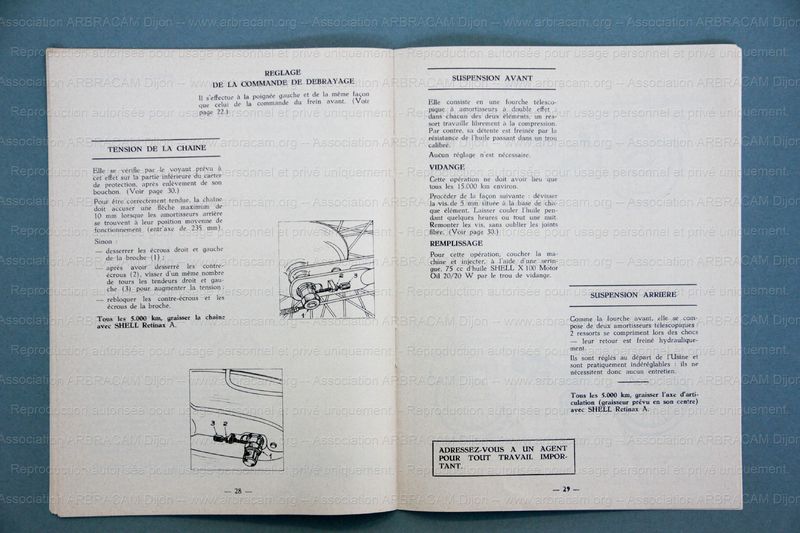 REGLAGE
DE LA COMMANDE DE DEBRAYAGE
Il s'effectue à la poignée gauche et de la même façon
que celui de la commande du frein avant. (Voir
page 22.)
TENSION DE LA CHAINE
Elle se vérifie par le voyant prévu à
cet effet sur la partie inférieure du carter
de protection, après enlèvement de son
bouchon. (Voir page 30.)
Pour être correctement tendue, la chaîne
doit accuser une flèche maximum de
10 mm lorsque les amortisseurs arrière
se trouvent à leur position moyenne de
fonctionnement (entr'axe de 235 mm).
Sinon :
— desserrer les écrous droit et gauche
de la broche (1) ;
— après avoir desserré les contre-
écrous (2), visser d'un même nombre
de tours les tendeurs droit et gau-
che (3) pour augmenter la tension ;
— rebloquer les contre-écrous et les
écrous de la broche.
Tous les 5.000 km, graisser la chaîne
avec SHELL Retinax A.
1
2
3
3
2
— 28 —
SUSPENSION AVANT
Elle consiste en une fourche télesco-
pique à amortisseurs à double effet :
dans chacun des deux éléments, un res-
sort travaille librement à la compression.
Par contre, sa détente est freinée par la
résistance de l'huile passant dans un trou
calibré.
Aucun réglage n'est nécessaire.
VIDANGE
Cette opération ne doit avoir lieu que
tous les 15.000 km environ.
Procéder de la façon suivante : dévisser
la vis de 5 mm située à la base de cha-
que élément. Laisser couler l'huile pen-
dant quelques heures ou tout une nuit.
Remonter les vis, sans oublier les joints
fibre. (Voir page 30.)
REMPLISSAGE
Pour cette opération, coucher la ma-
chine et injecter, à l'aide d'une serin-
gue, 75 cc d'huile SHELL X 100 Motor
Oil 20/20 W par le trou de vidange.
SUSPENSION ARRIERE
Comme la fourche avant, elle se com-
pose de deux amortisseurs télescopiques :
2 ressorts se compriment lors des chocs
— leur retour est freiné hydraulique-
ment.
Ils sont réglés au départ de l'Usine et
sont pratiquement indéréglables : ils ne
nécessitent donc aucun entretien.
Tous les 5.000 km, graisser l'axe d'arti-
culation (graisseur prévu en son centre)
avec SHELL Retinax A.
ADRESSEZ-VOUS A UN AGENT
POUR TOUT TRAVAIL IMPOR-
TANT.
— 29 —
Association ARBRACAM Dijon -- www.arbracam.org -- Association ARBRACAM Dijon
Reproduction autorisée pour usage personnel et privé uniquement.